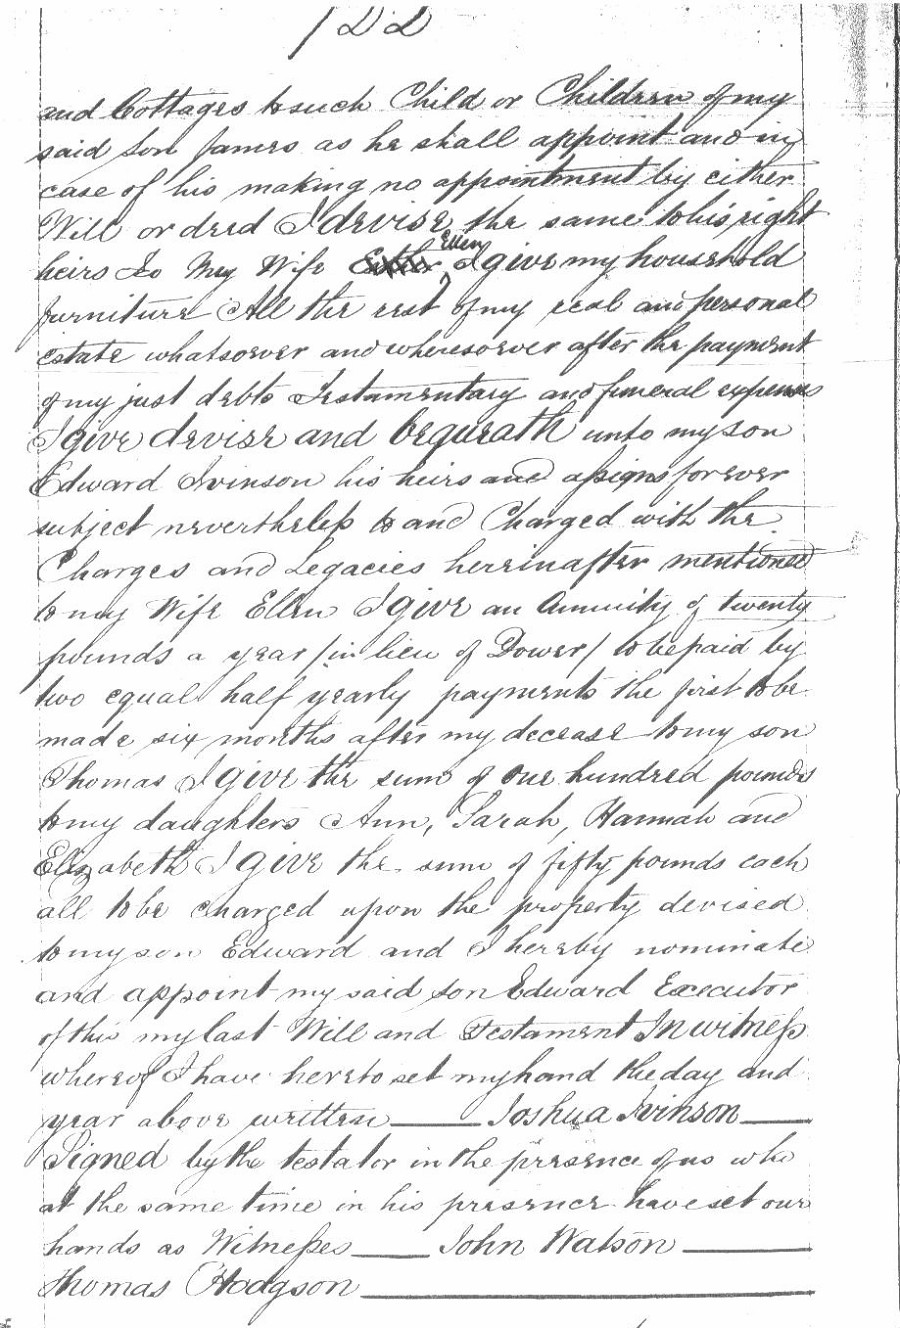 122
and Cottages to such Child or Children of my
said Son James as he shall appoint and in
case of his making no appointment by either
Will or deed I devise the same to his right
heirs To My Wife Ellen I give my household
furniture All the rest of my real and personal
estate whatsoever and wheresoever after the payment
of my just debts Testamentary and funeral expenses
I give devise and bequeath unto my son
Edward Ivinson his heirs and assigns for ever
subject nevertheless to and Charged with the
Charges and Legacies hereinafter mentioned
to my Wife Ellen I give an Annuity of twenty
pounds a year /in lieu of Dower/ to be paid by
two equal half yearly payments the first to be
made six months after my decease to my son
Thomas I give the sum of One hundred pounds
to my daughters Ann, Sarah, Hannah and
Elizabeth I give the sum of fifty pounds each
all to be charged upon the property devised
to my son Edward and I hereby nominate
and appoint my said son Edward Executor
of this my last Will and Testament In witness
whereof I have hereto set my hand the day and
year above written Joshua Ivinson
Signed by the testator in the presence of us who
at the same time in his presence have set our
hands as Witnesses John Watson
Thomas Hodgson